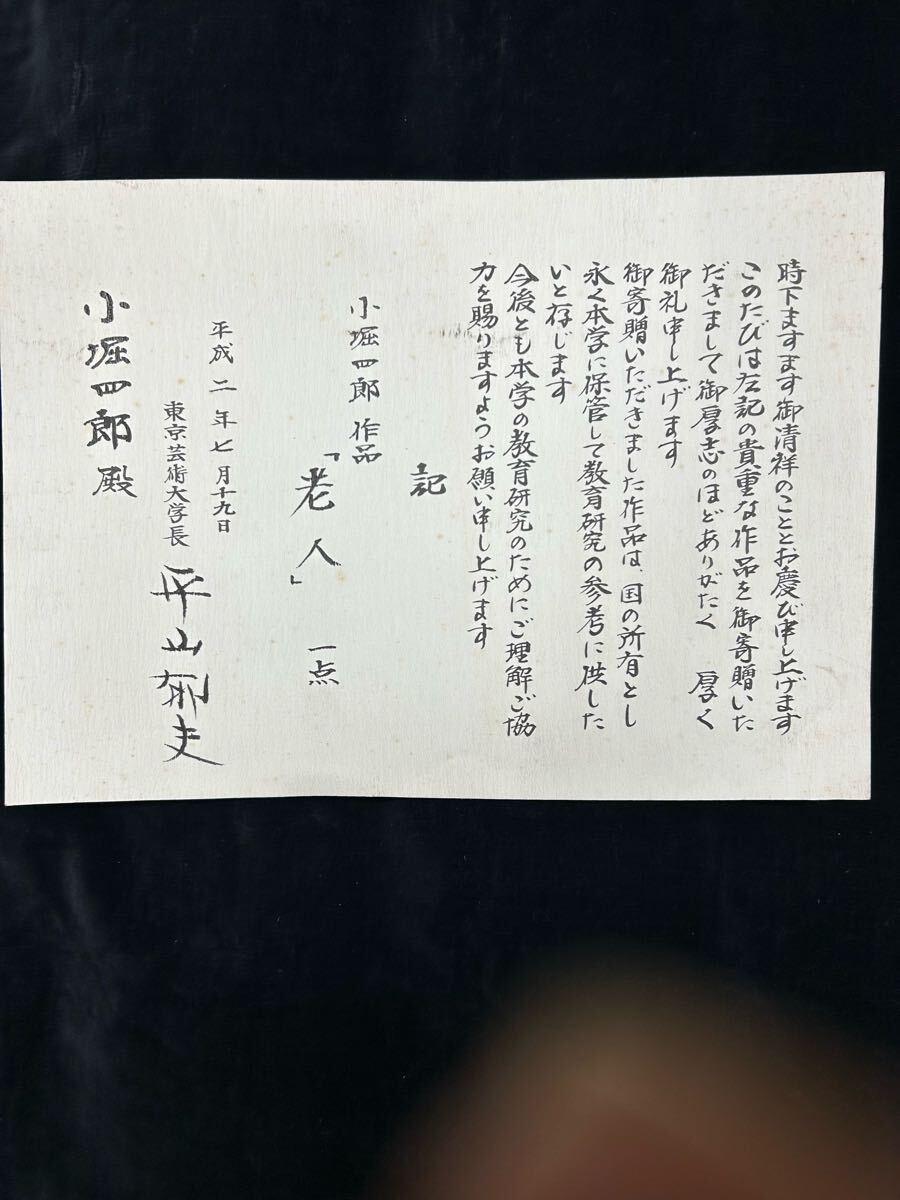 時下ますます御清祥のこととお慶び申し上げます
このたびは左記の貴重な作品を御寄贈いた
だきまして御厚志のほどありがたく 厚く
御礼申し上げます
御寄贈いただきました作品は、国の所有とし
永く本学に保管して教育研究の参考に供した
いと存じます
今後とも本学の教育研究のためにご理解ご協
力を賜りますようお願い申し上げます
記
小堀四郎 作品
「老人」 一点
平成二年七月十九日
東京芸術大学長 平山郁夫
小堀四郎殿